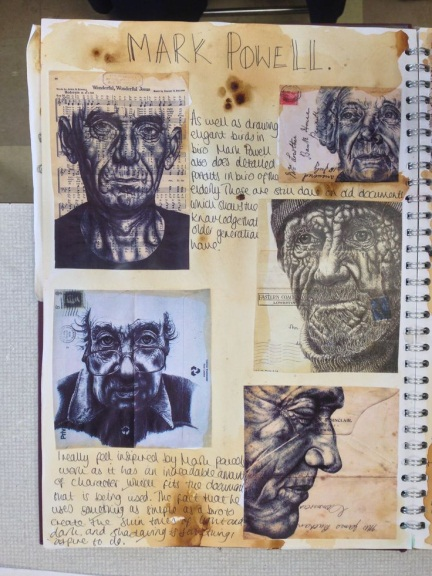 MARK POWELL.
Wonderful, Wonderful Jesus
As well as drawing
elegant birds in
biro Mark Powell
also does detailed
portraits in biro of the
elderly. These are still done on old documents
which shows the
knowledge that
older generation
have.
I really feel inspired by Mark
work as it has an amount
of character which fits the document
that is being used. The fact that he
uses something as simple as a biro to
create. The skin tones of light and
dark, and shadowing is something I
aspire to do.